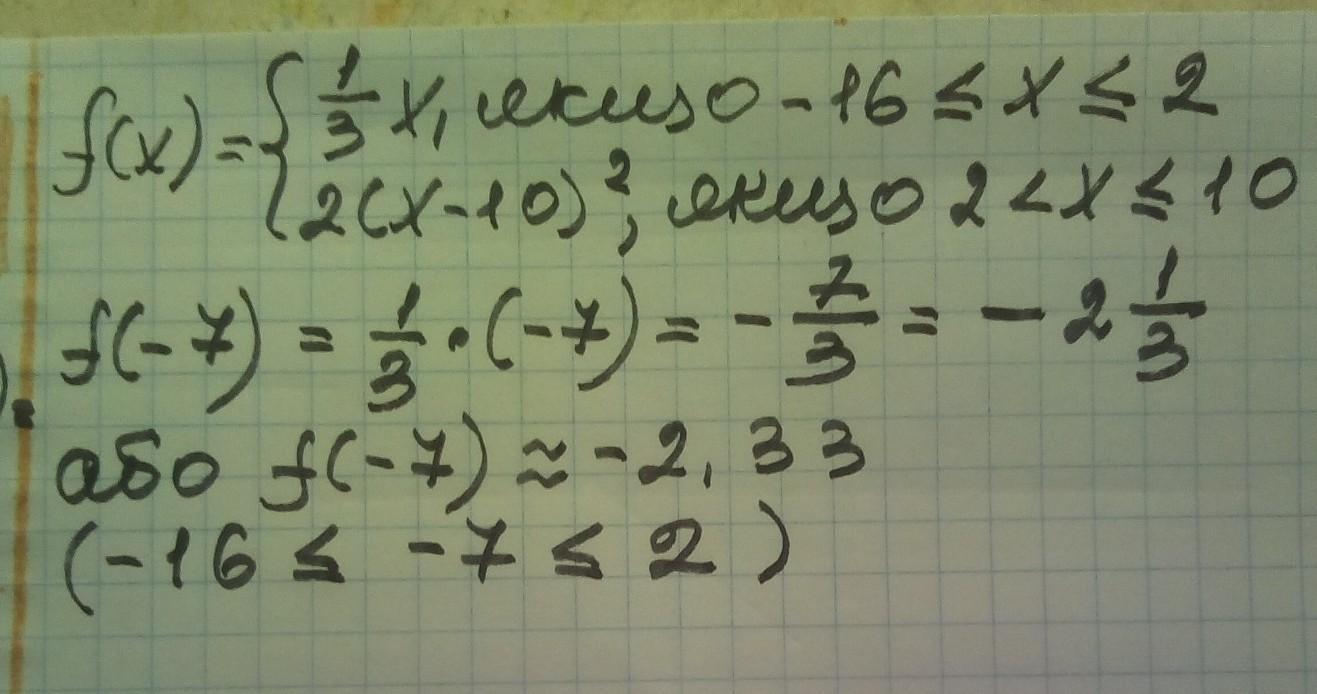 f(x) = { 1/3 x, якщо -16 ≤ x ≤ 2
2(x-10)², якщо 2 < x ≤ 10
f(-7) = 1/3 · (-7) = - 7/3 = - 2 1/3
або f(-7) ≈ -2,33
(-16 ≤ -7 ≤ 2)